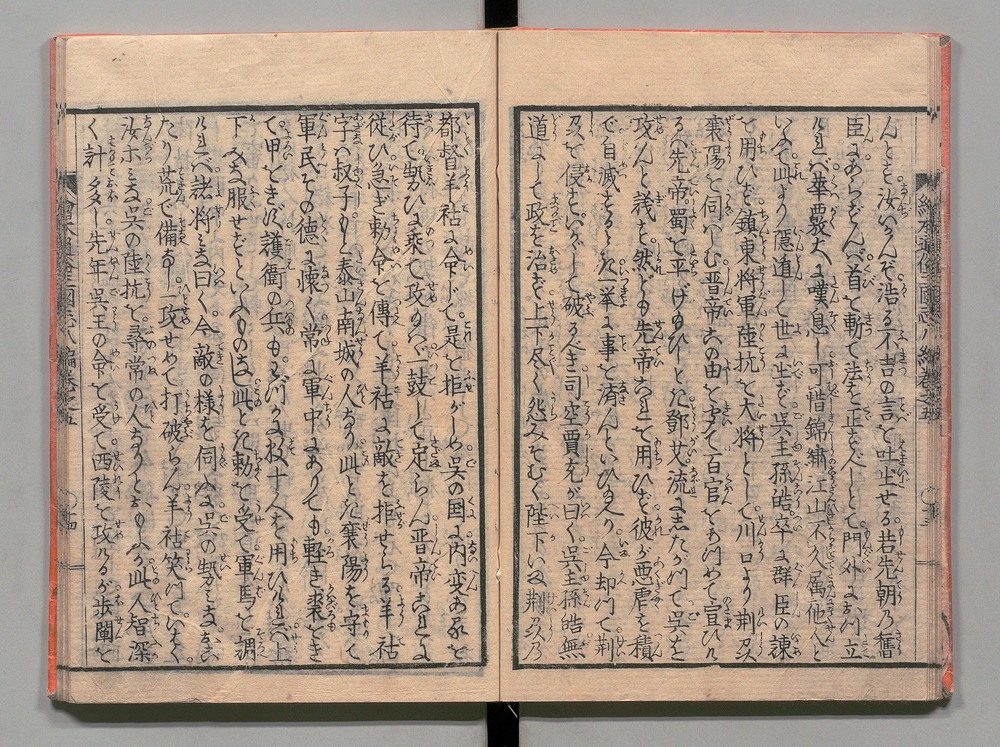 んとと汝いかんぞ浩る不吉の言を吐出せる若先朝乃舊
臣にあらずんバ首を斬て法を正すべしとて門外におつ立
けれバ華覈大に嘆息し可惜錦繍江山不久属他人と
いふて此より隠遁して世に出ず呉主孫皓卒に群臣の諌
を用ひず鎮東将軍陸抗を大将として川口より荆及
襄陽を伺ハしむ晋帝この由を聞て百官をあつめて宣ひけ
るハ先帝蜀を平げ給ひしとき鄧艾流にしたがつて呉を
攻んと議す然ども先帝これを用ひず彼が悪虐を積
で自滅するとき一挙に事を済んといひ玉へり今却つて荆
及を侵すいかにして破るべき司空賈充が曰く呉主孫皓無
道にして政を治めず上下尽く怨みそむく陛下いま荆及乃
都督羊祜に命じて是を拒がしめ呉の国に内変あるを
待て勢ひに乗て攻め給ハヾ鼓して定らん晋帝これに
従ひ急ぎ勅命を傳て羊祜に敵を拒せらる羊祜
字ハ叔子もと泰山南城の人なり此とき襄陽を守て
軍民その徳に懐く常に軍中にありても軽き裘をき
て甲をきず護衛の兵もわづかに数十人を用ひけれバ上
下みな服せずといふものなし此とき勅を受て軍馬を調
けれバ諸将みな曰く今敵の様を伺ふに呉の勢ミなおこ
たり荒て備なし一攻せめて打破らん羊祜笑つていはく
汝ホミな呉の陸抗を尋常の人なりとおもふか此人智深
く計多し先年呉王の命を受て西陵を攻けるが歩闡を